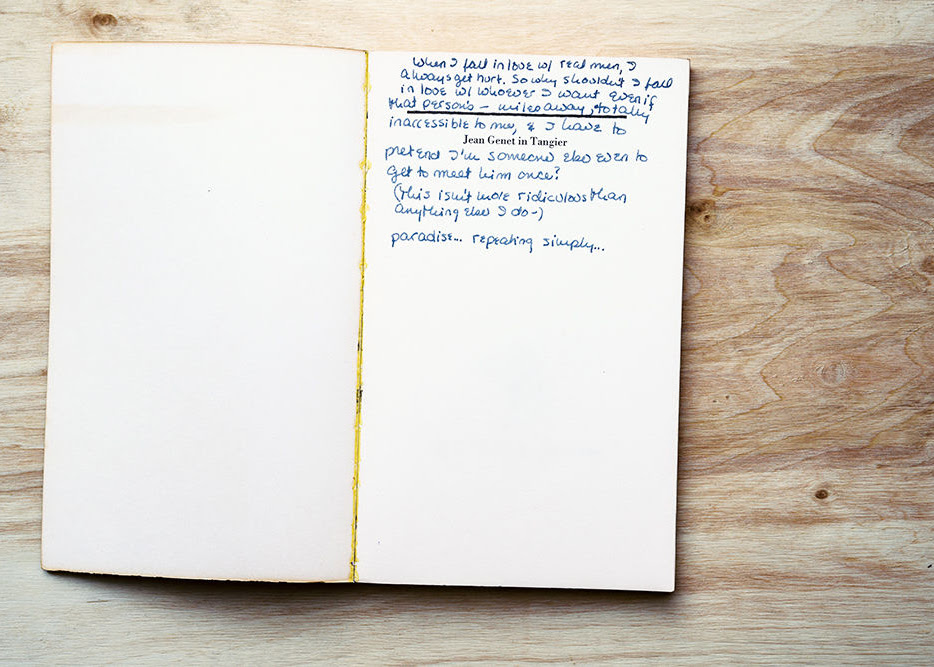 When I fall in love w/ real men, I
always get hurt. So why shouldn't I fall
in love w/ whoever I want even if
that persons – miles away, totally
inaccessible to me, & I have to
Jean Genet in Tangier
pretend I'm someone else even to
get to meet him once?
(this isn't more ridiculous than
anything else I do-)
paradise... repeating simply...